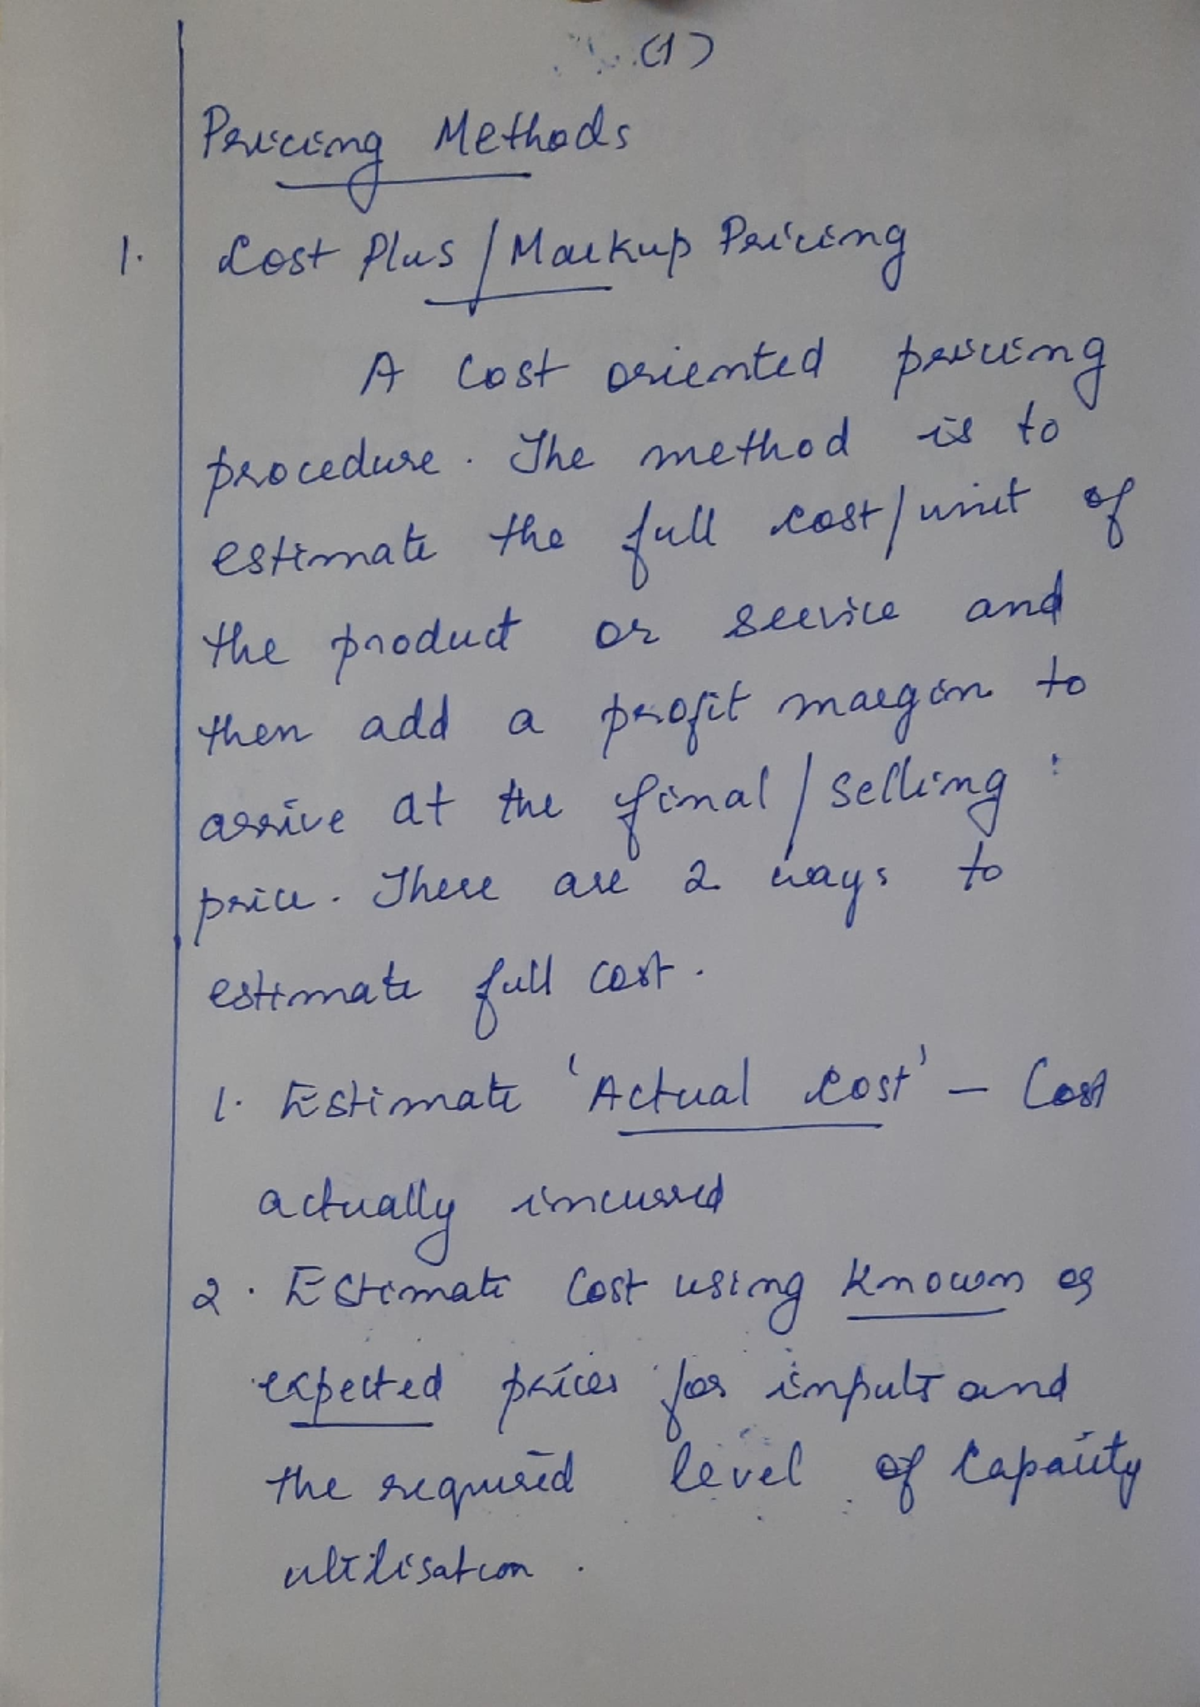 (1)
Pricing Methods
1. Cost Plus / Markup Pricing
A Cost oriented pricing
procedure. The method is to
estimate the full cost/unit of
the product or service and
then add a profit margin to
arrive at the final / selling
price. There are 2 ways to
estimate full cost.
1. Estimate 'Actual Cost' – Cost
actually incurred
2. Estimate Cost using known or
expected prices for inputs and
the required level of Capacity
utilisation.